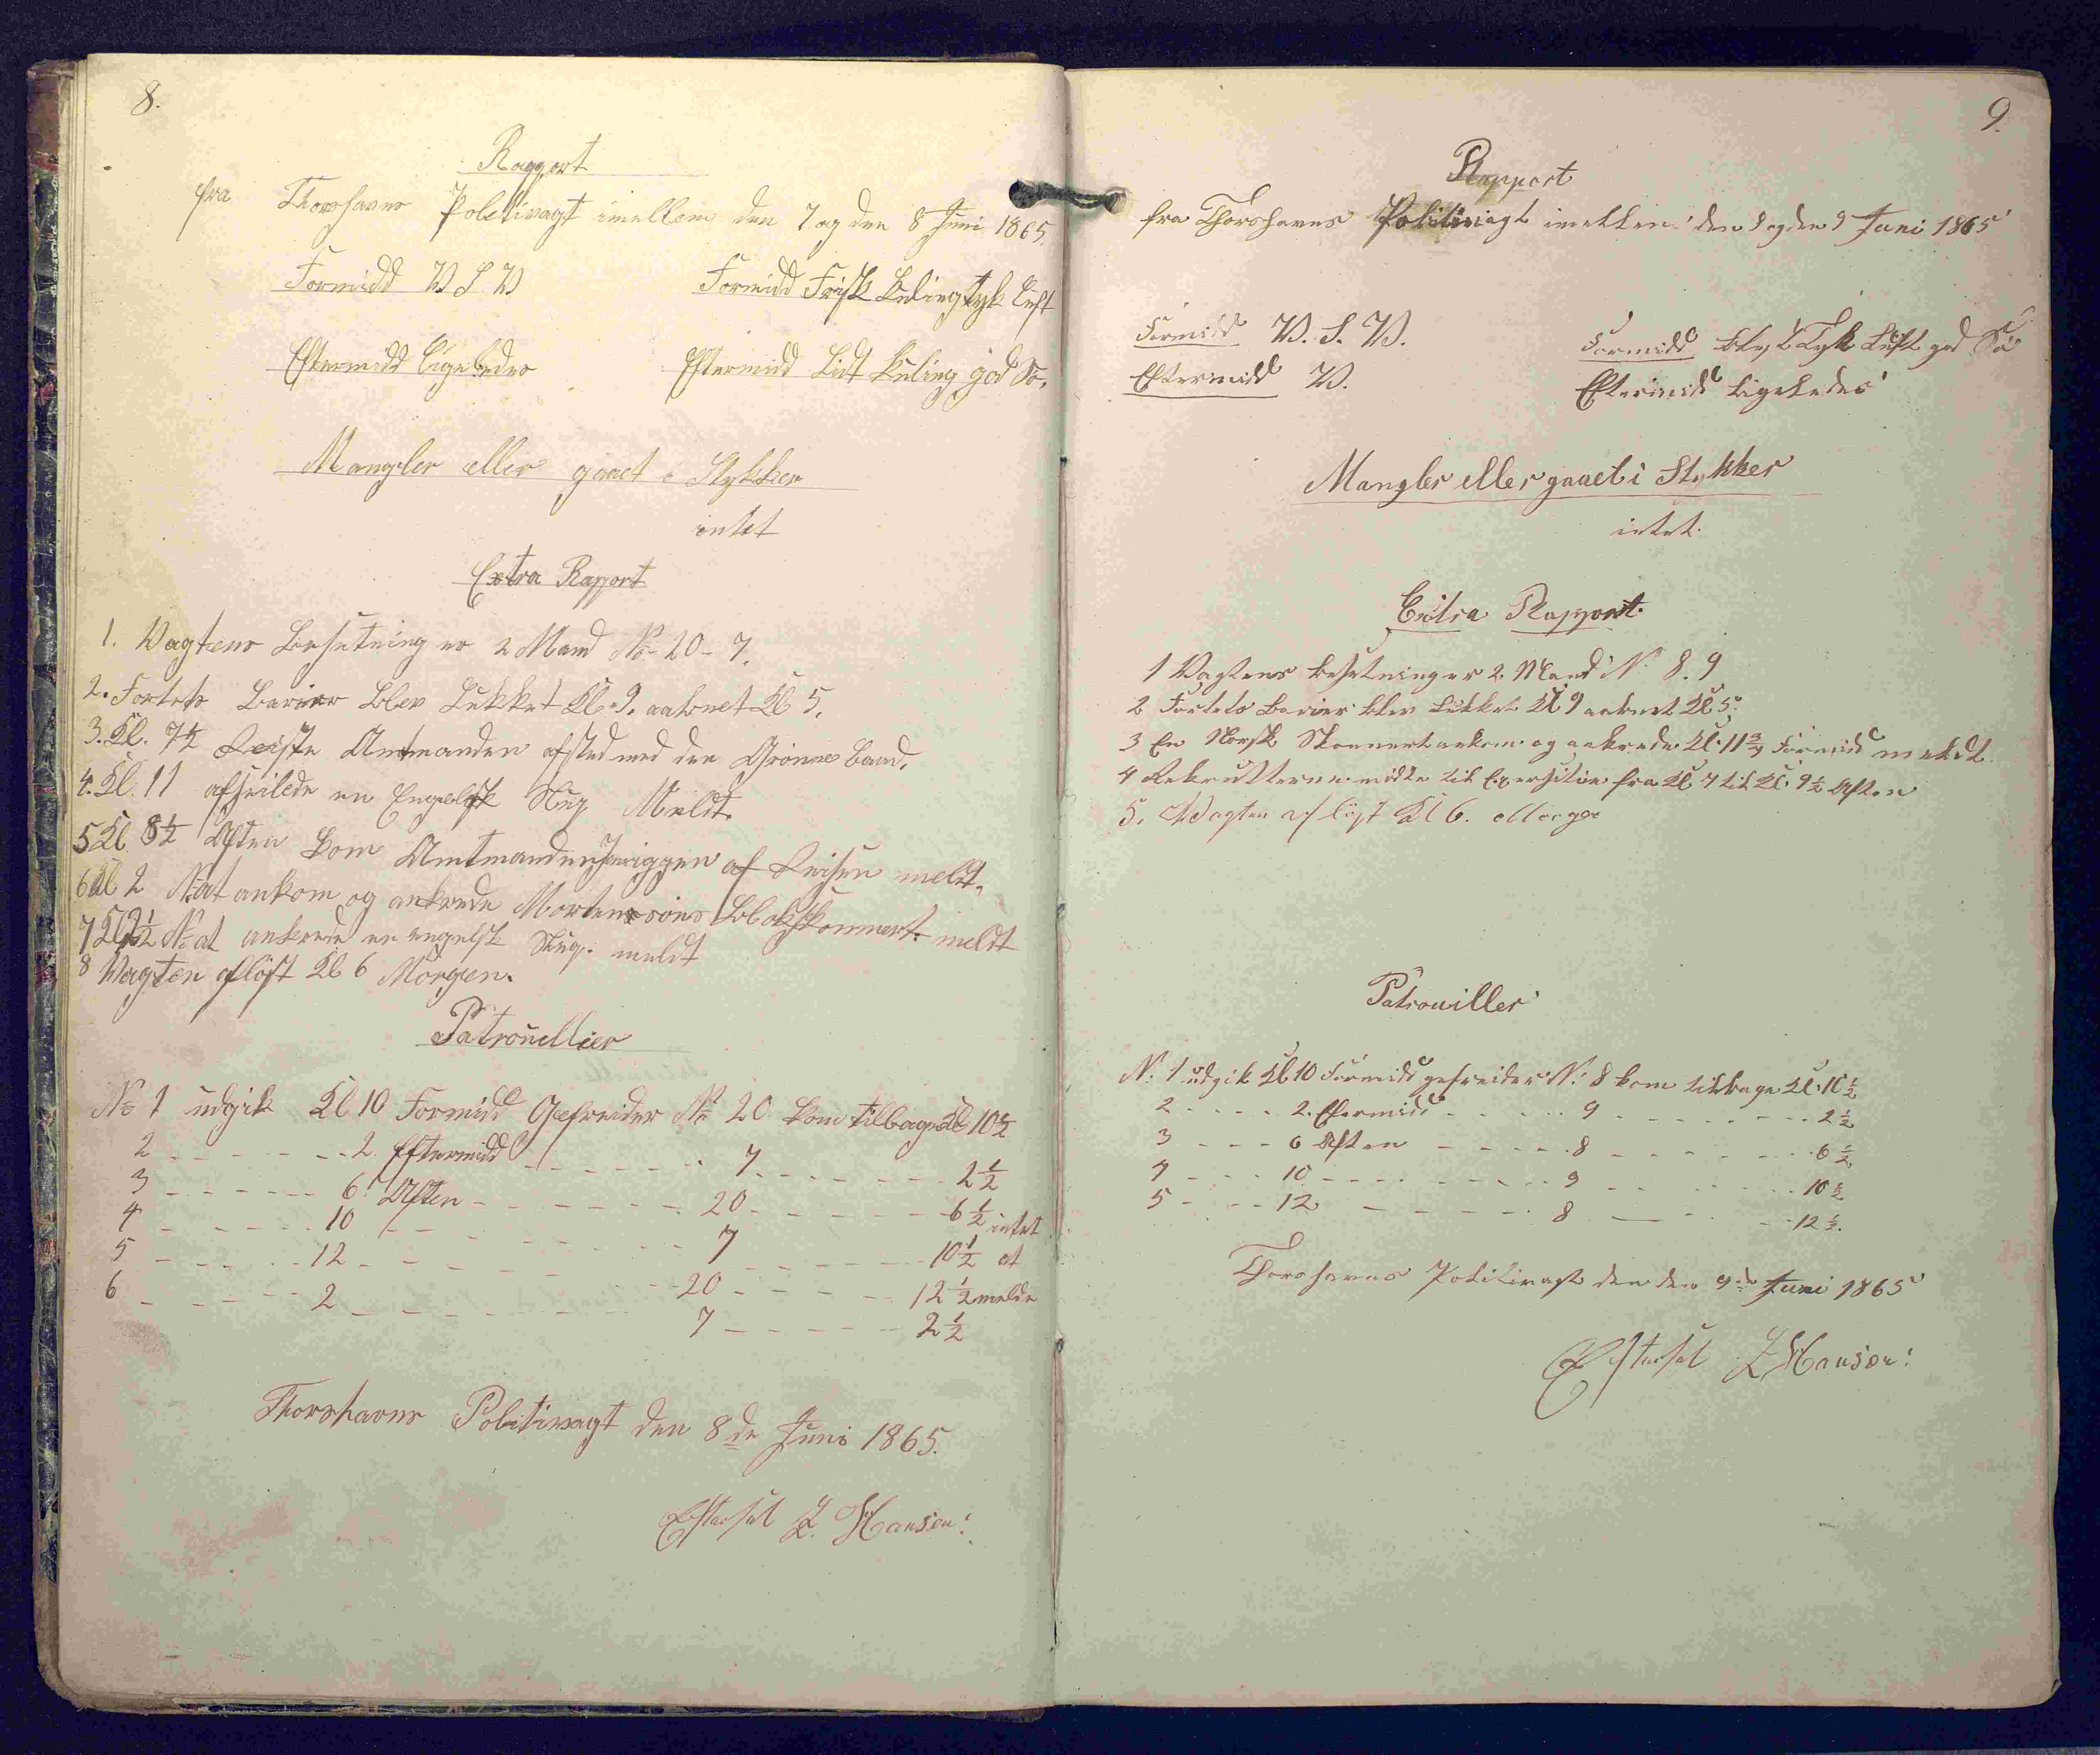 8.
Rapport
fra Thorshavns Politivagt imellem den 7 og den 8 Juni 1865.
Formidd V S V Formidd Frisk Kuling tyk Luft
Eftermidd ligeledes Eftermidd Lidt Kuling god Sø.
Mangler eller gaaet i Stykker
intet
Extra Rapport
1. Vagtens Besetning er 2 Mand No 20 - 7.
2. Fortets Barier blev Lukket Kl. 9. aabnet Kl 5.
3. Kl. 7½ Reiste Amtmanden afsted med den Grønne Baad.
4. Kl. 11 afseilede en Engelsk Slup Meldt.
5 Kl. 8½ Aften kom Amtmanden af Reisen meldt.
6 Kl 2 Nat ankom og ankrede Mortensens meldt
7 Kl 2½ Nat ankrede en engelsk Slup. meldt
8 Vagten afløst Kl 6 Morgen.
Patrouellier
No 1 udgik Kl 10 Formidd Gefreider No 20 kom tilbage Kl 10½
2 - - - - - - 2. Eftermidd - - - - - - 7 - - - - - - 2½
3 - - - - - - 6 Aften - - - - - - 20 - - - - - - 6½ intet
4 - - - - - - 10 - - - - - - 7 - - - - - - 10½ at
5 - - - - - - 12 - - - - - - 20 - - - - - - 12½ melde
6 - - - - - - 2 - - - - - - 7 - - - - - - 2½
Thorshavns Politivagt den 8de Juni 1865.
Hansen
9.
Rapport
fra Thorshavns Politivagt imellem den 8 og den 9 Juni 1865
Formidd V. S. V. Formidd Tyk Luft god Sø
Eftermidd V. Eftermidd ligeledes
Mangler eller gaaet i Stykker
intet.
Extra Rapport.
1 Vagtens besetning er 2 Mand N. 8. 9
2 Fortets Barier blev Lukket Kl 9 aabnet Kl 5.
3 En Norsk Skonnert ankom og ankrede Kl. 11¾ Formidd meldt.
4 Rekrutterne mødte til Exersition fra Kl 7 til Kl. 9½ Aften
5. Vagten afløst Kl 6. Morgen
Patrouiller
N. 1 udgik Kl 10 Formidd gefreider N. 8 kom tilbage Kl. 10½
2 - - - - 2. Eftermidd - - - - 9 - - - - 2½
3 - - - - 6 Aften - - - - 8 - - - - 6½
4 - - - - 10 - - - - 9 - - - - 10½
5 - - - - 12 - - - - 8 - - - - 12½.
Thorshavns Politivagt den den 9de Juni 1865
Hansen